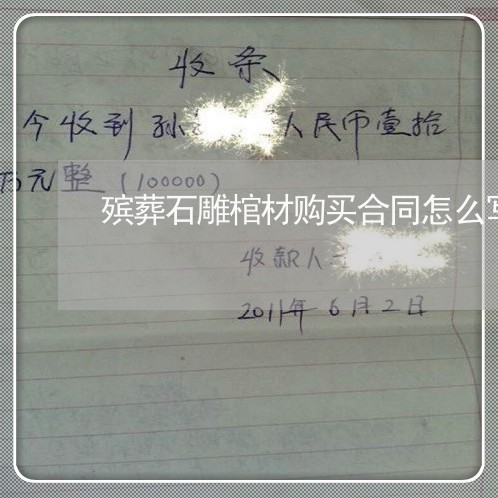 收条
今收到孙 人民币壹拾
万元整(100000)
殡葬石雕棺材购买合同怎么写
收款人
2011年6月2日